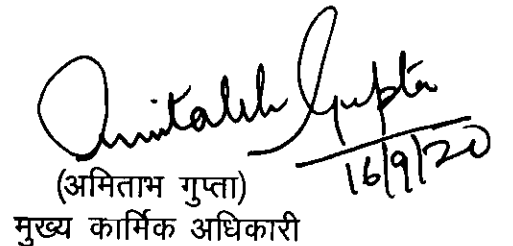 Amitabh Gupta
16/9/20
(अमिताभ गुप्ता)
मुख्य कार्मिक अधिकारी